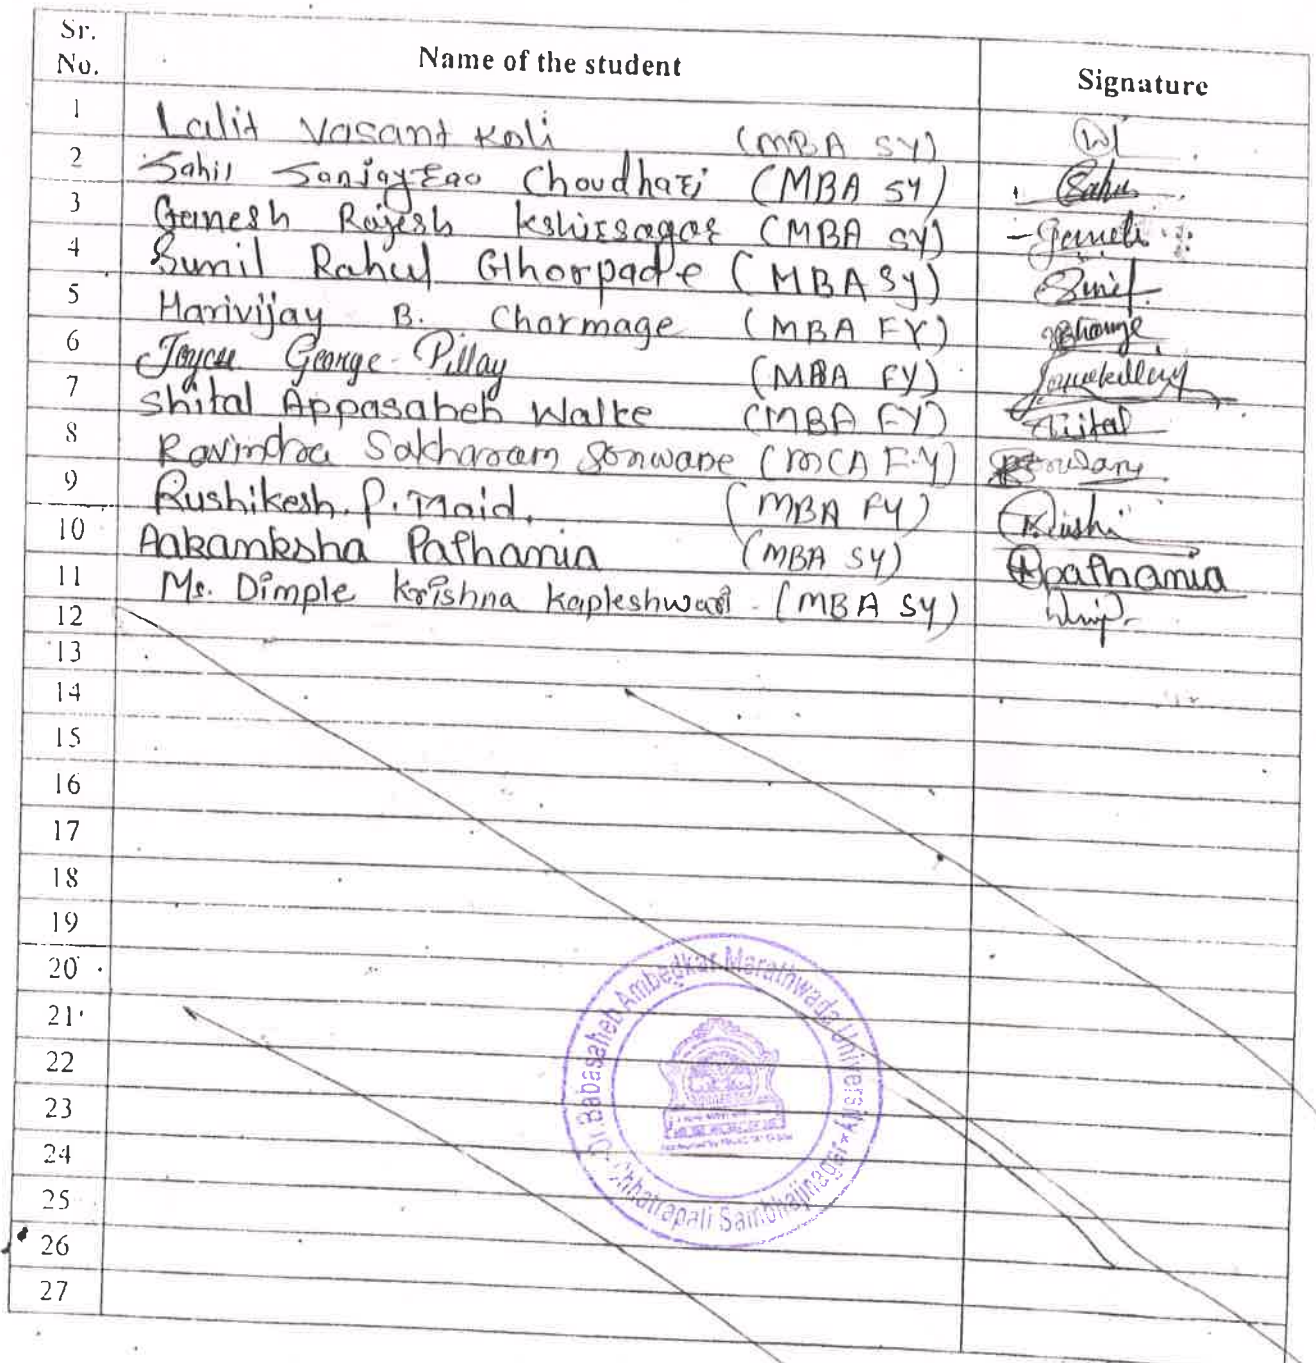 Sr. No. Name of the student Signature
1 Lalit Vasant Koli (MBA SY)
2 Sahil Sanjayrao Choudhari (MBA SY) Sahil
3 Ganesh Rajesh Kshirsagar (MBA SY) Ganesh
4 Sunil Rahul Ghorpade (MBA Sy) Sunil
5 Harivijay B. Chormage (MBA FY)
6 Joyce George Pillay (MBA FY)
7 Shital Appasaheb Walke (MBA FY) Shital
8 Ravindra Sakharam Sonwane (MCA F.Y)
9 Rushikesh. P. Maid. (MBA FY) Rushi
10 Aakanksha Pathania (MBA SY) Apathania
11 Ms. Dimple Krishna Kapleshwari - (MBA SY)
12
13
14
15
16
17
18
19
20
21
22
23
24
25
26
27
Dr. Babasaheb Ambedkar Marathwada University
Chhatrapati Sambhajinagar